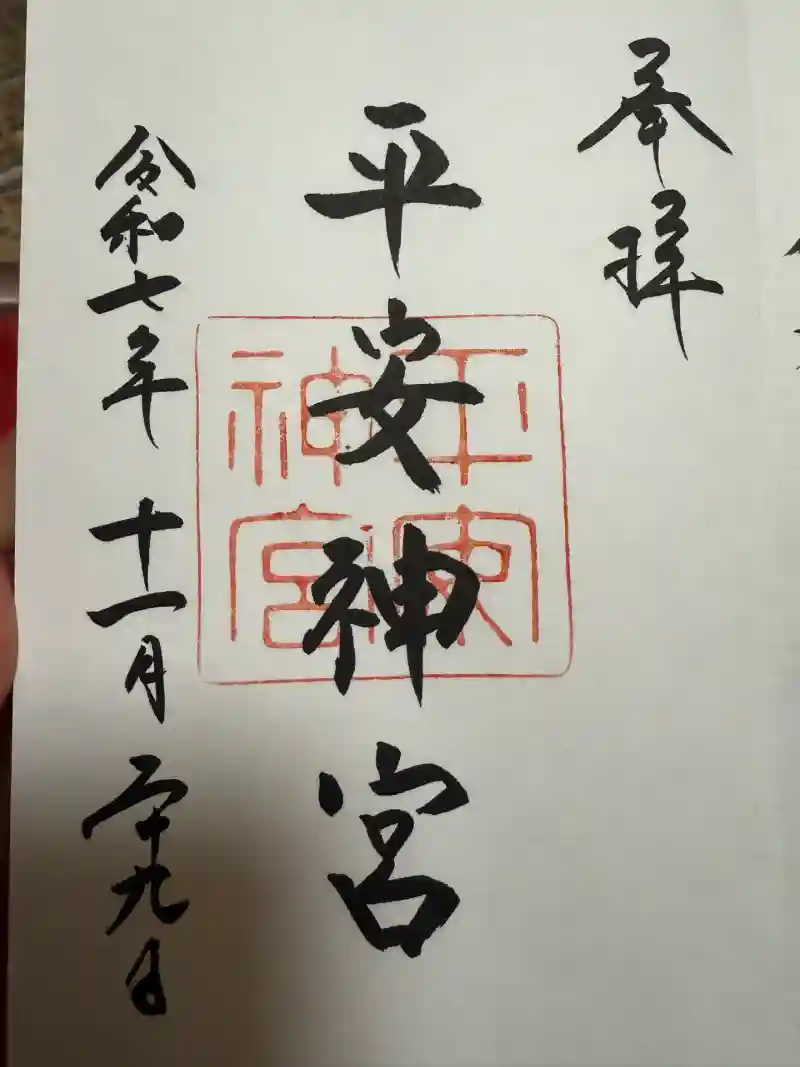 奉拝
平安神宮
平安神宮
令和七年 十一月 二十九日